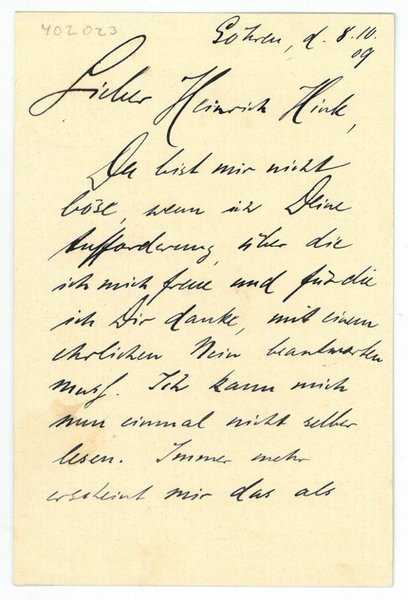 402.023
Göhren, d. 8.10.
09
Lieber Heinrich Hink,
Du bist mir nicht
böse, wenn ich Deine
Aufforderung, über die
ich mich freue und für die
ich Dir danke, mit einem
ehrlichen Nein beantworten
muß. Ich kann mich
nun einmal nicht selber
lesen. Immer mehr
erscheint mir das als